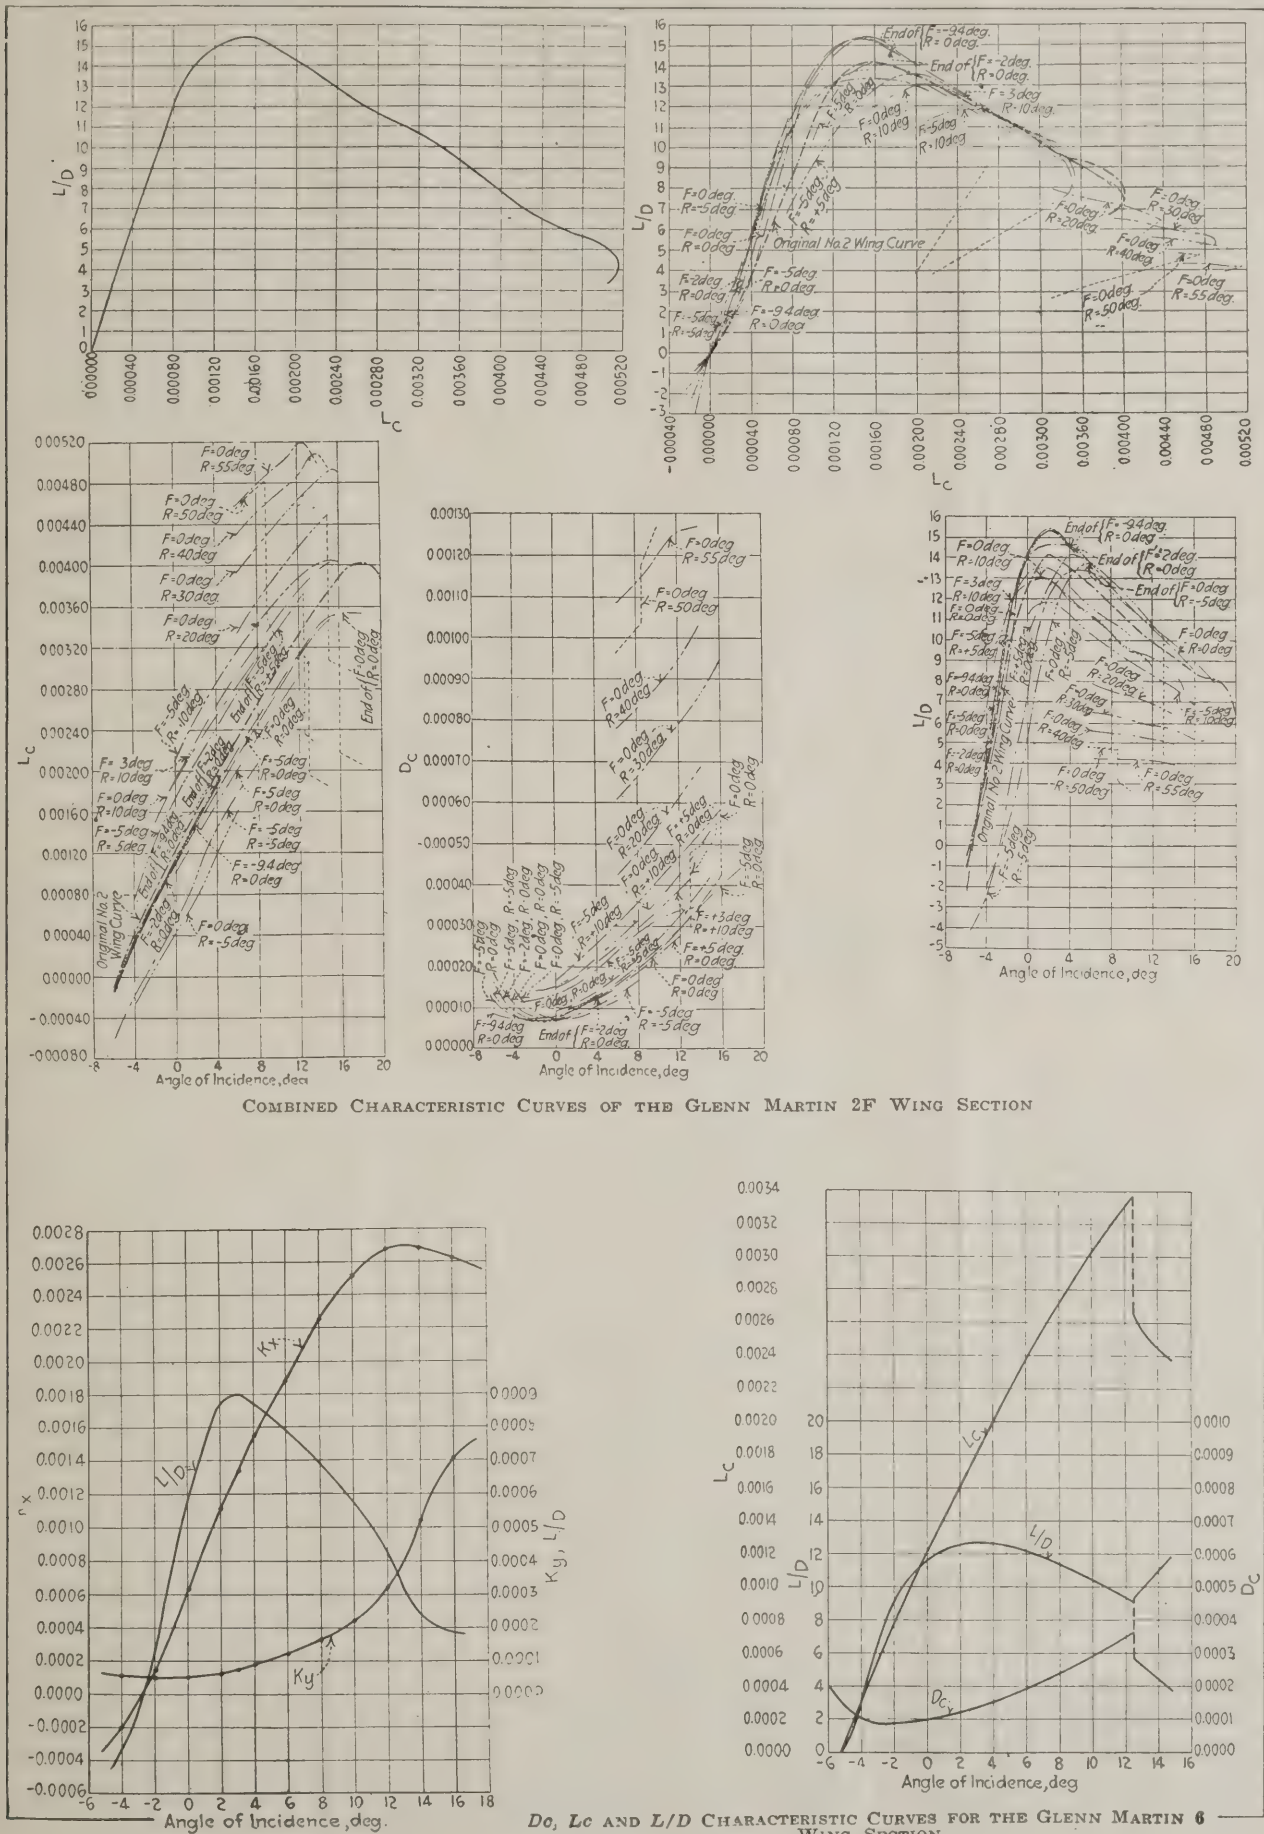 16
15
14
13
12
11
10
9
8
7
6
5
4
3
2
1
0
L/D
0.00000
0.00040
0.00080
0.00120
0.00160
0.00200
0.00240
0.00280
0.00320
0.00360
0.00400
0.00440
0.00480
0.00520
LC
16
15
14
13
12
11
10
9
8
7
6
5
4
3
2
1
0
-1
-2
-3
L/D
End of { F=-9.4deg.
R=0deg.
End of { F=-2deg.
R=0deg.
F=3deg
R-10deg
F=5deg
R=0deg
F=0deg
R=10deg
F=-5deg
R=10deg
F=0deg
R=-5deg
F=-5deg
R=+5deg
F=0deg
R=0deg
Original No.2 Wing Curve
F=-2deg
R=0deg
F=-5deg
R=0deg
F=-5deg
R=-5deg
F=-9.4deg
R=0deg
F=0deg
R=20deg
F=0deg
R=30deg
F=0deg
R=40deg
F=0deg
R=50deg
F=0deg
R=55deg
-0.00040
0.00000
0.00040
0.00080
0.00120
0.00160
0.00200
0.00240
0.00280
0.00320
0.00360
0.00400
0.00440
0.00480
0.00520
LC
0.00520
0.00480
0.00440
0.00400
0.00360
0.00320
0.00280
0.00240
0.00200
0.00160
0.00120
0.00080
0.00040
0.00000
-0.00040
-0.00080
LC
F=0deg
R=55deg
F=0deg
R=50deg
F=0deg
R=40deg
F=0deg
R=30deg
F=0deg
R=20deg
F=-5deg
R=10deg
F=3deg
R=10deg
F=0deg
R=10deg
F=-5deg
R=5deg
F=-5deg
R=+5deg
F=0deg
R=0deg
F=-5deg
R=0deg
F=5deg
R=0deg
F=-5deg
R=-5deg
F=-9.4deg
R=0deg
F=0deg
R=-5deg
F=-2deg
R=0deg
End of { F=0deg
R=0deg
Original No.2
Wing Curve
-8 -4 0 4 8 12 16 20
Angle of Incidence, deg
0.00130
0.00120
0.00110
0.00100
0.00090
0.00080
0.00070
0.00060
-0.00050
0.00040
0.00030
0.00020
0.00010
0.00000
DC
F=0deg
R=55deg
F=0deg
R=50deg
F=0deg
R=40deg
F=0deg
R=30deg
F=0deg
R=20deg
F=+5deg
R=0deg
F=0deg
R=0deg
F=0deg
R=+10deg
F=-5deg
R=+10deg
F=-5deg
R=0deg
F=-5deg, R=-5deg
F=-2deg, R=0deg
F=0deg, R=0deg
F=0deg, R=-5deg
F=-5deg
R=0deg
F=+3deg
R=+10deg
F=+5deg
R=0deg
F=0deg
R=0deg
F=-5deg
R=+5deg
F=0deg, R=0deg
F=-5deg
R=-5deg
F=-9.4deg
R=0deg
End of { F=-2deg
R=0deg
-8 -4 0 4 8 12 16 20
Angle of Incidence, deg
16
15
14
13
12
11
10
9
8
7
6
5
4
3
2
1
0
-1
-2
-3
-4
-5
L/D
End of { F=-9.4deg.
R=0deg.
End of { F=2deg
R=0deg
End of { F=0deg
R=-5deg
F=0deg
R=10deg
F=3deg
R=10deg
F=0deg
R=0deg
F=-5deg
R=+5deg
F=-9.4deg
R=0deg
F=-5deg
R=0deg
F=-2deg
R=0deg
F=+5deg
R=0deg
F=0deg
R=-5deg
F=0deg
R=0deg
F=0deg
R=20deg
F=0deg
R=30deg
F=-5deg
R=10deg
F=0deg
R=40deg
F=0deg
R=50deg
F=0deg
R=55deg
Original No.2 Wing Curve
F=-5deg
R=-5deg
-8 -4 0 4 8 12 16 20
Angle of Incidence, deg
COMBINED CHARACTERISTIC CURVES OF THE GLENN MARTIN 2F WING SECTION
0.0028
0.0026
0.0024
0.0022
0.0020
0.0018
0.0016
0.0014
0.0012
0.0010
0.0008
0.0006
0.0004
0.0002
0.0000
-0.0002
-0.0004
-0.0006
Kx
L/D
Ky
0.0009
0.0008
0.0007
0.0006
0.0005
0.0004
0.0003
0.0002
0.0001
0.0000
Ky, L/D
-6 -4 -2 0 2 4 6 8 10 12 14 16 18
Angle of Incidence, deg.
0.0034
0.0032
0.0030
0.0028
0.0026
0.0024
0.0022
0.0020
0.0018
0.0016
0.0014
0.0012
0.0010
0.0008
0.0006
0.0004
0.0002
0.0000
LC
20
18
16
14
12
10
8
6
4
2
0
L/D
LC
L/D
DC
0.0010
0.0009
0.0008
0.0007
0.0006
0.0005
0.0004
0.0003
0.0002
0.0001
0.0000
DC
-6 -4 -2 0 2 4 6 8 10 12 14 16
Angle of Incidence, deg
Dc, Lc AND L/D CHARACTERISTIC CURVES FOR THE GLENN MARTIN 6
WING SECTION